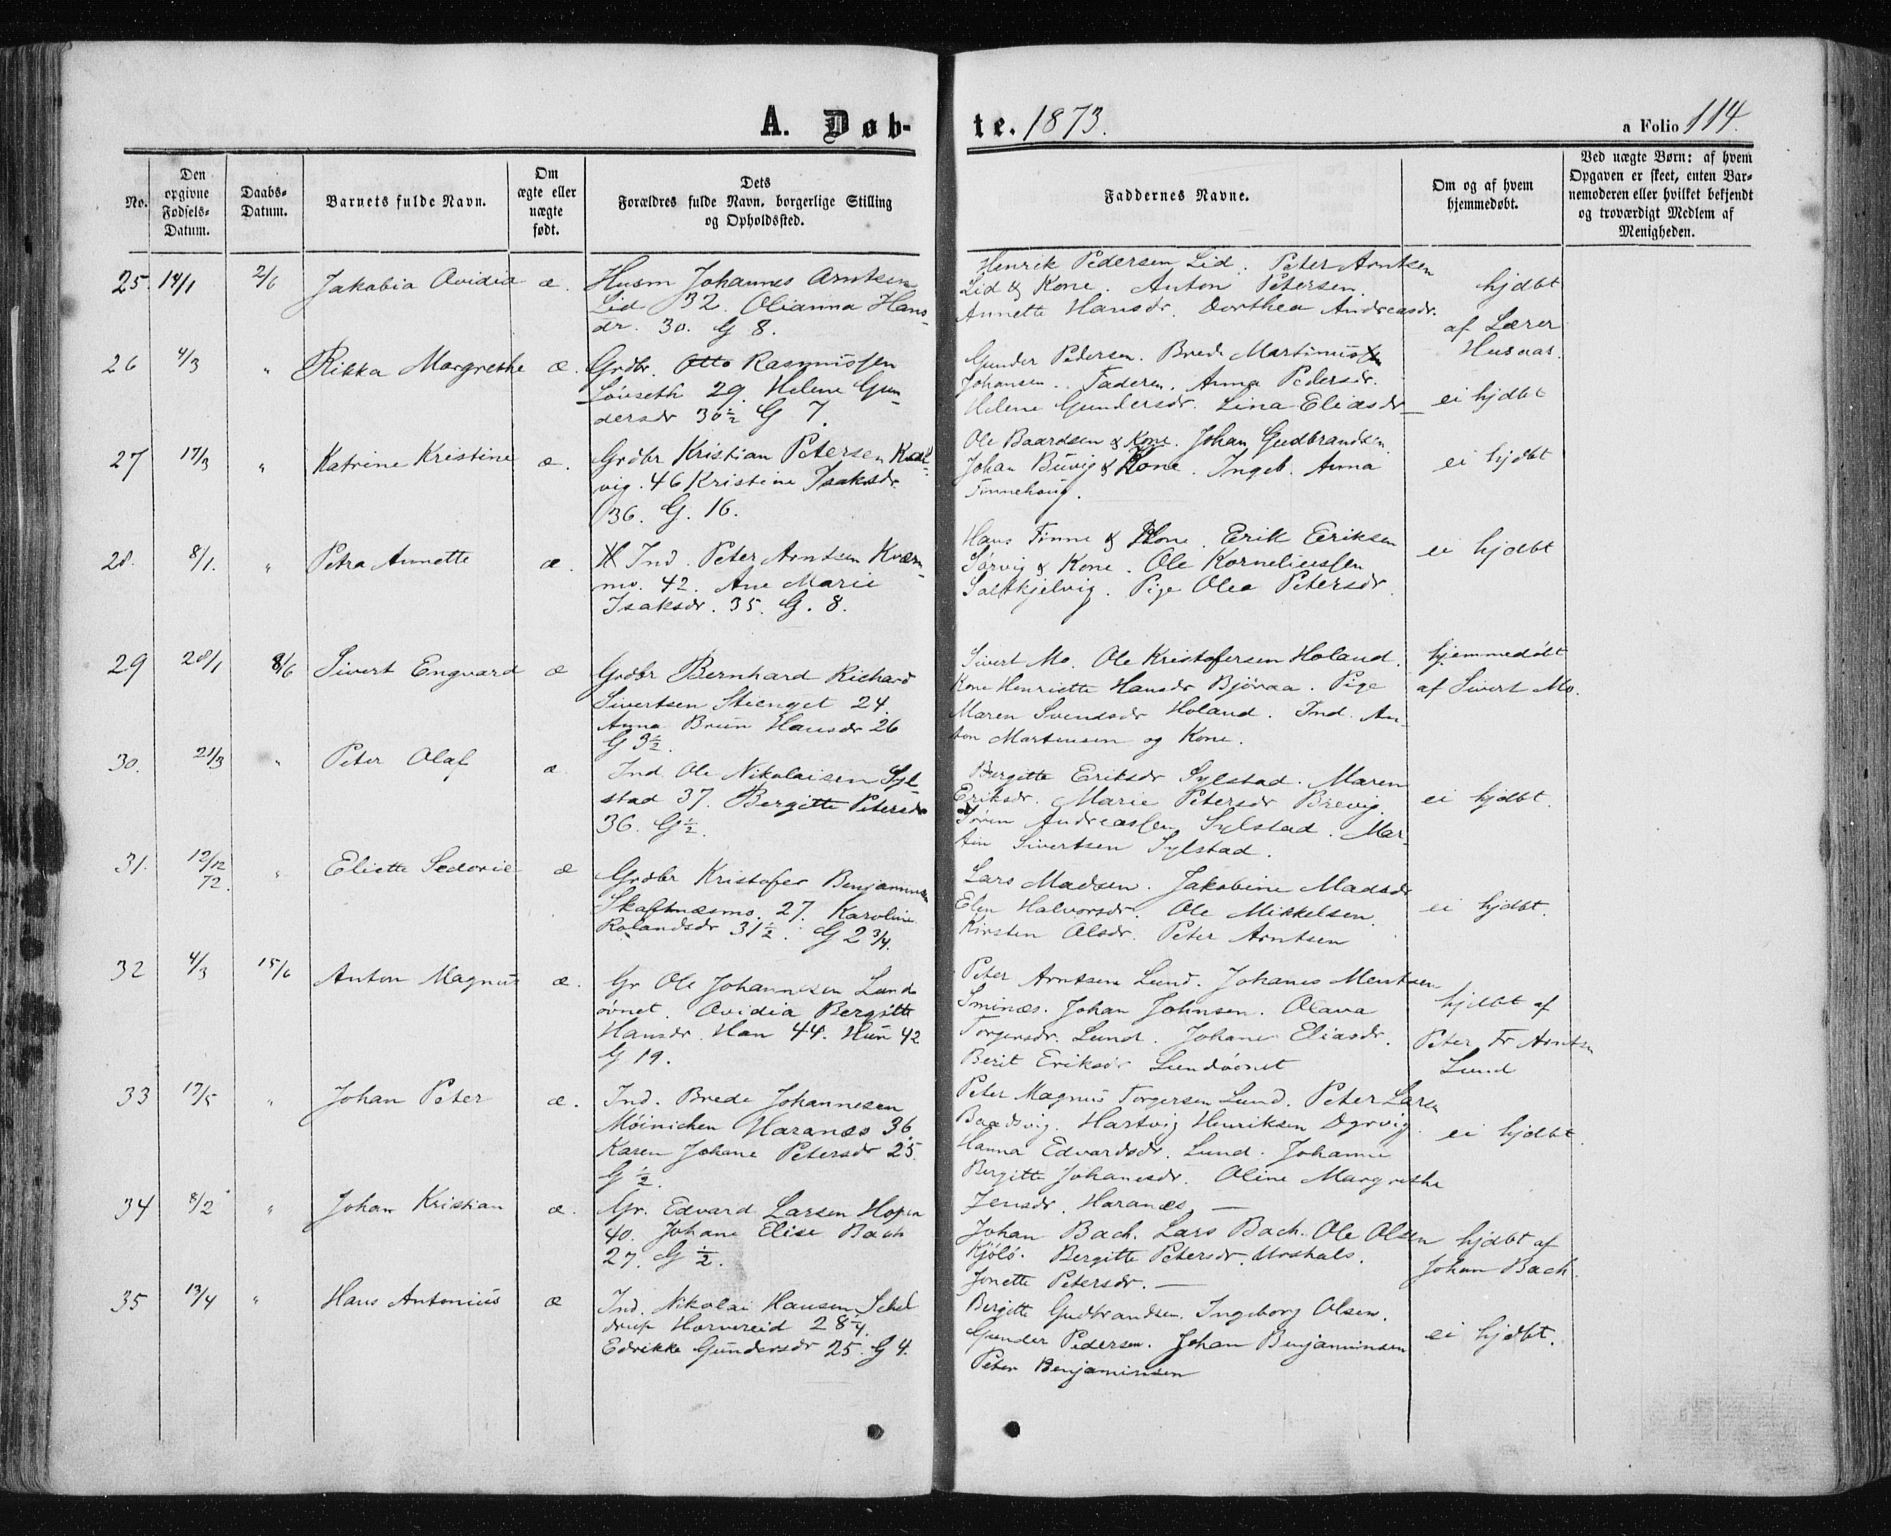 A. Døb-
te. 1873.
a Folio 114.
No.
Den opgivne Fødsels-Datum.
Daabs-Datum.
Barnets fulde Navn.
Om ægte eller uægte født.
Dets Forældres fulde Navn, borgerlige Stilling og Opholdssted.
Faddernes Navne.
Om og af hvem hjemmedøbt.
Ved uægte Børn: af hvem Opgaven er skeet, enten Barnemoderen eller hvilket bekjendt og troværdigt Medlem af Menigheden.
25. 14/1 2/6 Jakobia Ovidia æ. Husm Johannes Arntsen
Lid 32. Olianna Hans-
dr. 30. G 8.
Henrik Pedersen Lid. Peter Arntsen
Lid & Kone. Anton Petersen.
Annette Hansdr. Dorthea Andreasdr.
hjdbt
af Lærer
Husvas.
26 4/3 " Rikka Margrethe æ. Grdbr. Otto Rasmussen
Løvseth 29. Helene Gun-
dersdr 30½ G 7.
Gunder Pedersen. Brede Martinussen
Johansen. Faderen. Anna Pedersdr.
Helene Gundersdr. Lina Eliasdr
ei hjdbt
27 17/3 " Katrine Kristine æ. Grdbr Kristian Petersen Kal-
vig. 46 Kristine Isaksdr
36. G. 16.
Ole Baardsen & Kone. Johan Gudbrandsen
Johan Buvig & Kone. Ingeb. Anna
Finnehaug.
ei hjdbt
28. 8/1. " Petra Annette æ. Ind. Peter Arntsen Kværn-
mo. 42. Ane Marie
Isaksdr. 35. G. 8.
Hans Finne & Kone. Erik Eriksen
Sørvig & Kone. Ole Korneliussen
Saltkjelvig. Pige Olea Petersdr.
ei hjdbt
29 28/1 8/6 Sivert Engvard æ Grdbr Bernhard Richard
Sivertsen Stienget 24.
Anna Brun Hansdr 26
G 3½.
Sivert Mo. Ole Kristofersen Holand.
Kone Henriette Hansdr Bjøraa. Pige
Maren Svendsdr Holand. Ind. An-
ton Martensen og Kone.
hjemmedøbt
af Sivert Mo.
30. 21/3 " Peter Olaf æ Ind. Ole Nikolaisen Syl-
stad 37. Bergitte Petersdr
36. G½.
Bergitte Eriksdr Sylstad. Maren
Eriksdr. Marie Petersdr Brevig.
Søren Andreassen Sylstad. Mar-
tin Sivertsen Sylstad.
ei hjdbt.
31. 12/12 72. " Eliette Sedorie æ Grdbr Kristofer Benjaminsen
Skaftnæsmo. 27. Karoline
Rolandsdr 31½. G 2¾.
Lars Madsen. Jakobine Madsdr
Elen Halvorsdr. Ole Mikkelsen.
Kirsten Olsdr. Peter Arntsen
ei hjdbt.
32 4/3 15/6 Anton Magnus æ. Gr Ole Johannesen Lund
øvnet. Ovidia Bergitte
Hansdr. Han 44. Hun 42
G 19.
Peter Arntsen Lund. Johanes Mentsen
Sminæs. Johan Johnsen. Olava
Torgersdr. Lund. Johane Eliasdr.
Berit Eriksdr Lundøvnet
hjdbt af
Peter Fr Arntsen
Lund
33 17/5 " Johan Peter æ. Ind. Brede Johannesen
Møinichen Haranæs 36.
Karen Johane Petersdr 25.
G ½.
Peter Magnus Torgersen Lund. Peter Larsen
Baadsvig. Hartvig Henriksen Dyrvig.
Hanna Edvardsdr. Lund. Johanne
Bergitte Johanesdr. Oline Margrethe
Jensdr. Haranæs. —
ei hjdbt.
34 8/2 " Johan Kristian æ. Gr. Edvard Larsen Hopen
40. Johane Elise Bach
27. G ½.
Johan Bach. Lars Bach. Ole Olsen
Kjølø. Bergitte Petersdr. Urshals.
Jonette Petersdr. —
hjdbt af
Johan Bach.
35 13/4 " Hans Antonius æ Ind. Nikolai Hansen Schel
drup Harvereid 28¼.
Edrikke Gundersdr 25. G 4.
Bergitte Gudbrandsen. Ingeborg Olsen.
Gunder Pedersen. Johan Benjaminsen
Peter Benjaminsen
ei hjdbt.